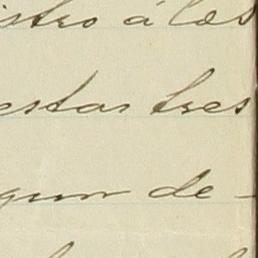 istro á las
estas tres
gun de-